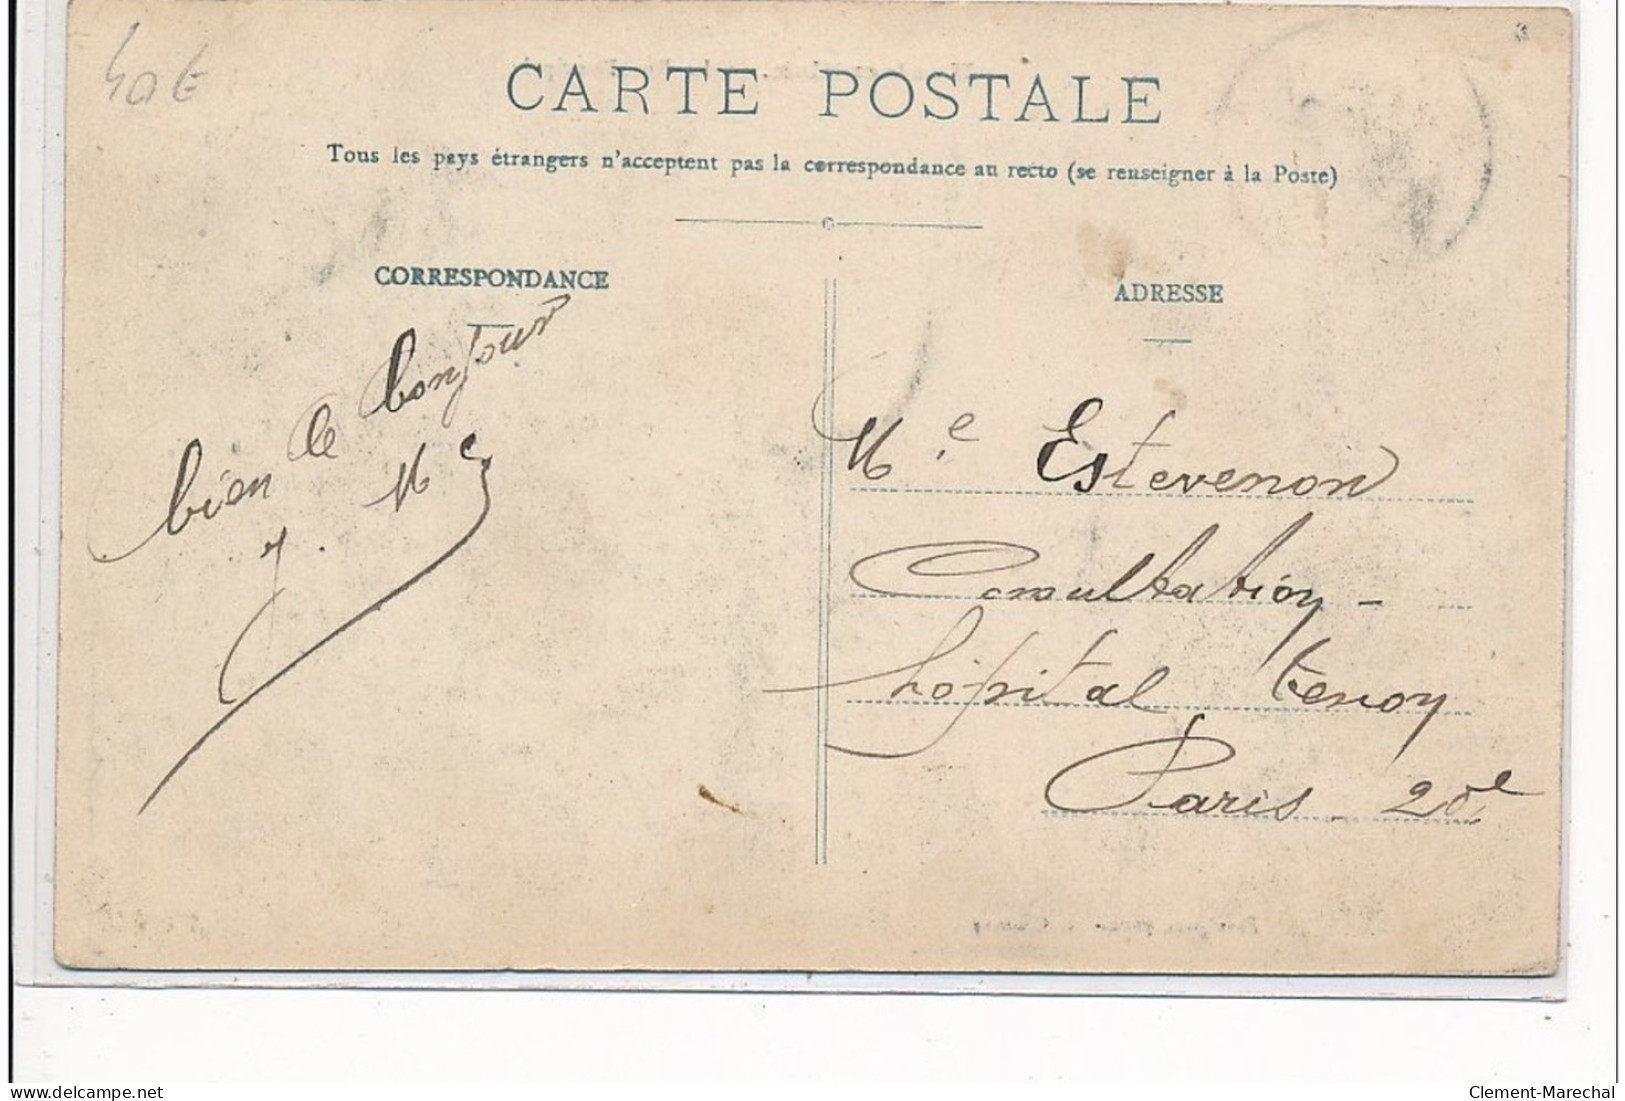 40 €
CARTE POSTALE
Tous les pays étrangers n'acceptent pas la correspondance au recto (se renseigner à la Poste)
CORRESPONDANCE
bien le bonjour
J. Mc
ADRESSE
Me Estevenon
Consultation -
hôpital tenon
Paris 20e
Clement-Marechal